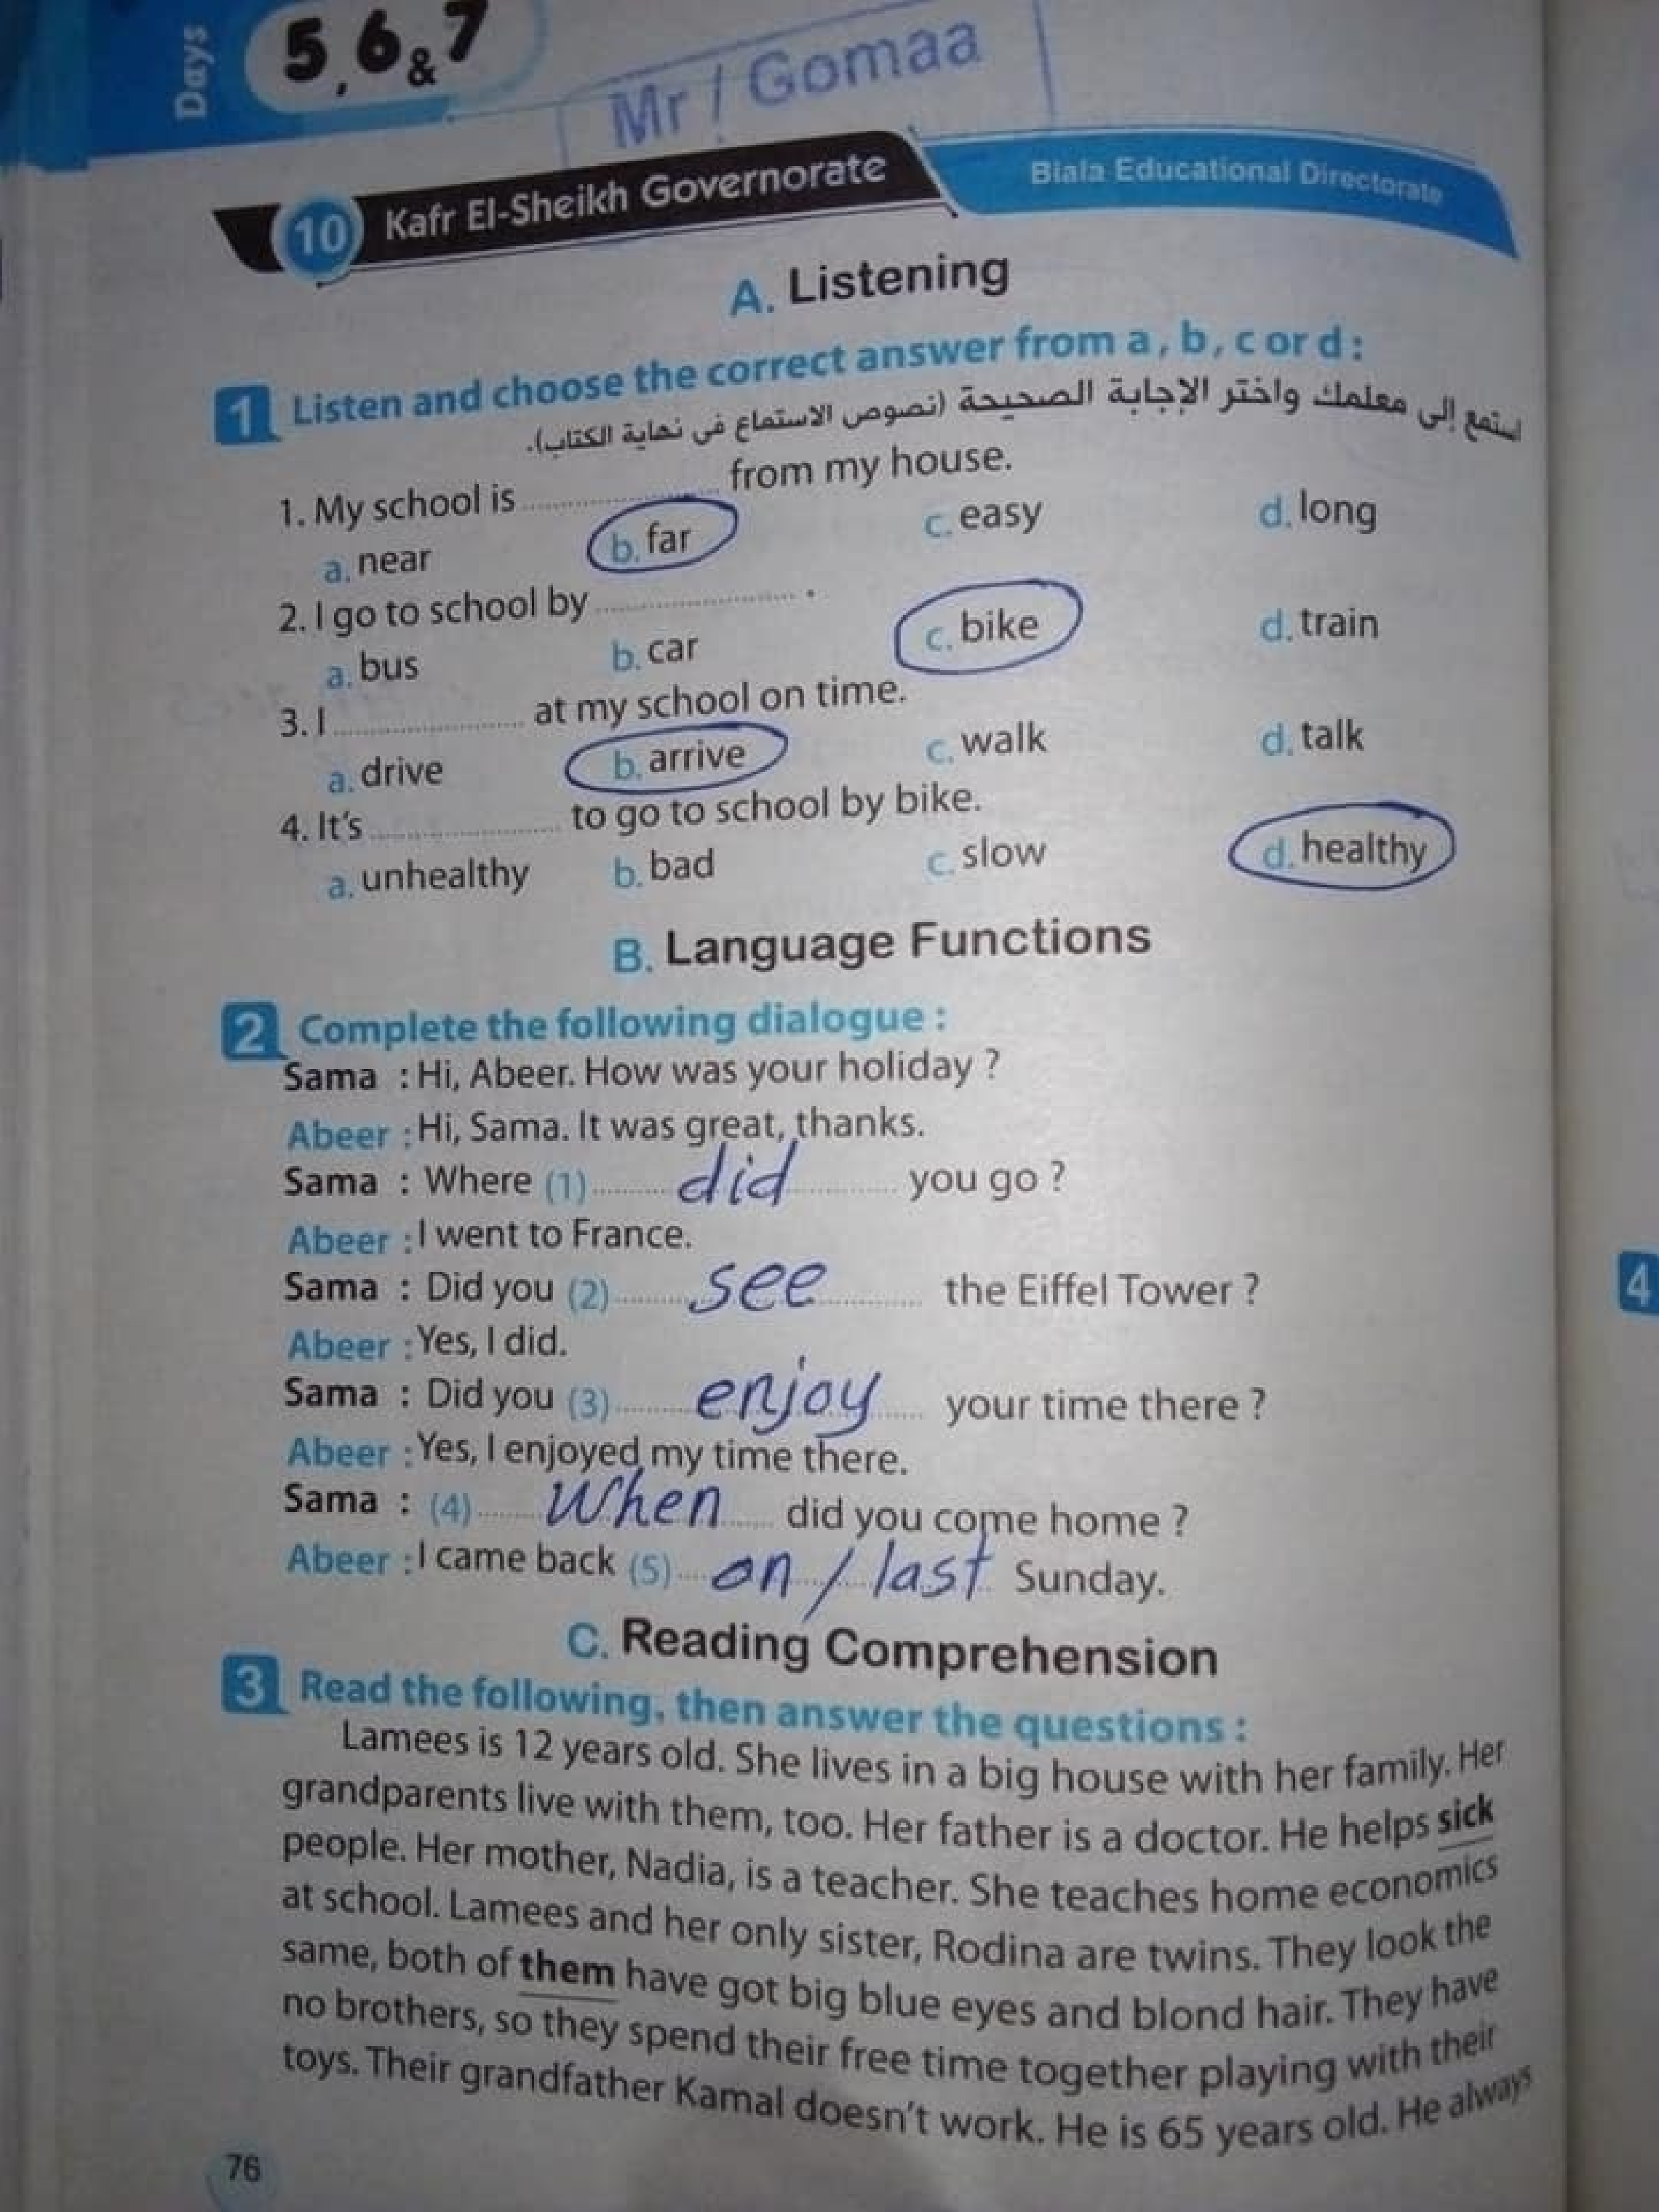 Days 5, 6 & 7
Mr / Gomaa
10 Kafr El-Sheikh Governorate
Biala Educational Directorate
A. Listening
1 Listen and choose the correct answer from a, b, c or d :
استمع إلى معلمك واختر الإجابة الصحيحة (نصوص الاستماع فى نهاية الكتاب).
1. My school is .................... from my house.
a. near b. far c. easy d. long
2. I go to school by .................... .
a. bus b. car c. bike d. train
3. I .................... at my school on time.
a. drive b. arrive c. walk d. talk
4. It's .................... to go to school by bike.
a. unhealthy b. bad c. slow d. healthy
B. Language Functions
2 Complete the following dialogue :
Sama : Hi, Abeer. How was your holiday ?
Abeer : Hi, Sama. It was great, thanks.
Sama : Where (1) did you go ?
Abeer : I went to France.
Sama : Did you (2) see the Eiffel Tower ?
Abeer : Yes, I did.
Sama : Did you (3) enjoy your time there ?
Abeer : Yes, I enjoyed my time there.
Sama : (4) When did you come home ?
Abeer : I came back (5) on / last Sunday.
C. Reading Comprehension
3 Read the following, then answer the questions :
Lamees is 12 years old. She lives in a big house with her family. Her
grandparents live with them, too. Her father is a doctor. He helps sick
people. Her mother, Nadia, is a teacher. She teaches home economics
at school. Lamees and her only sister, Rodina are twins. They look the
same, both of them have got big blue eyes and blond hair. They have
no brothers, so they spend their free time together playing with their
toys. Their grandfather Kamal doesn't work. He is 65 years old. He always
76
4